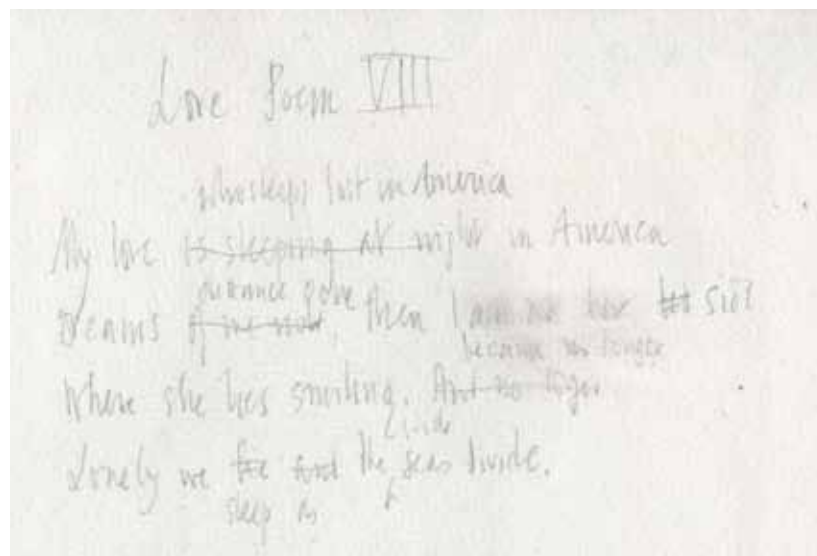 Love Poem VIII
who sleeps lost in America
My love is sleeping at night in America
Dreams of me now, then I am her side
because no longer
Where she lies smiling. And no longer
Lonely we the the seas divide.
sleep as